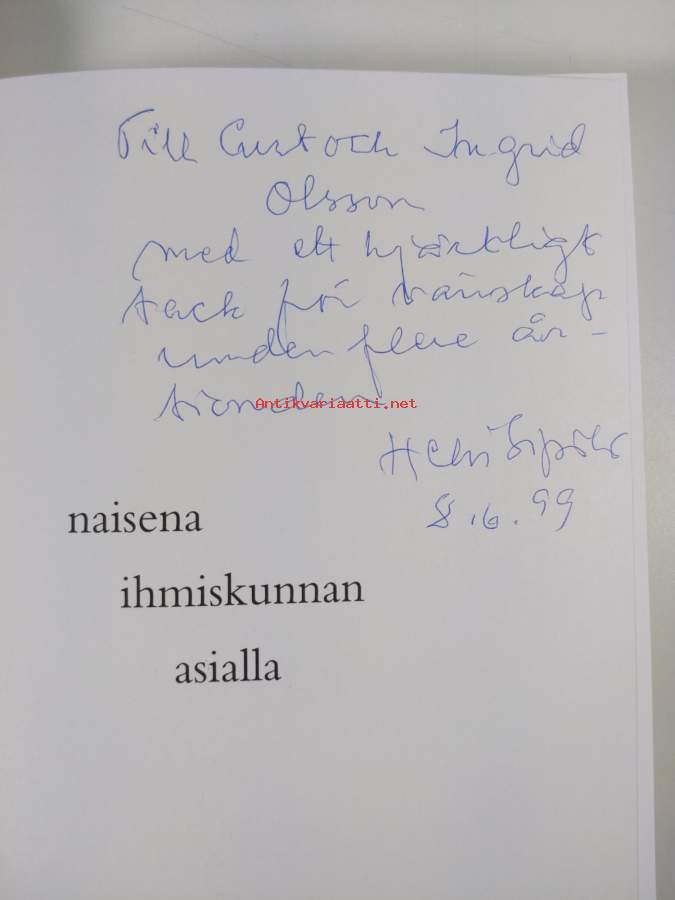 Till Curt och Ingrid
Olsson
med ett hjärtligt
tack för vänskap
under flere år-
tionden
Antikvariaatti.net
Helvi Sipilä
8.6.99
naisena
ihmiskunnan
asialla